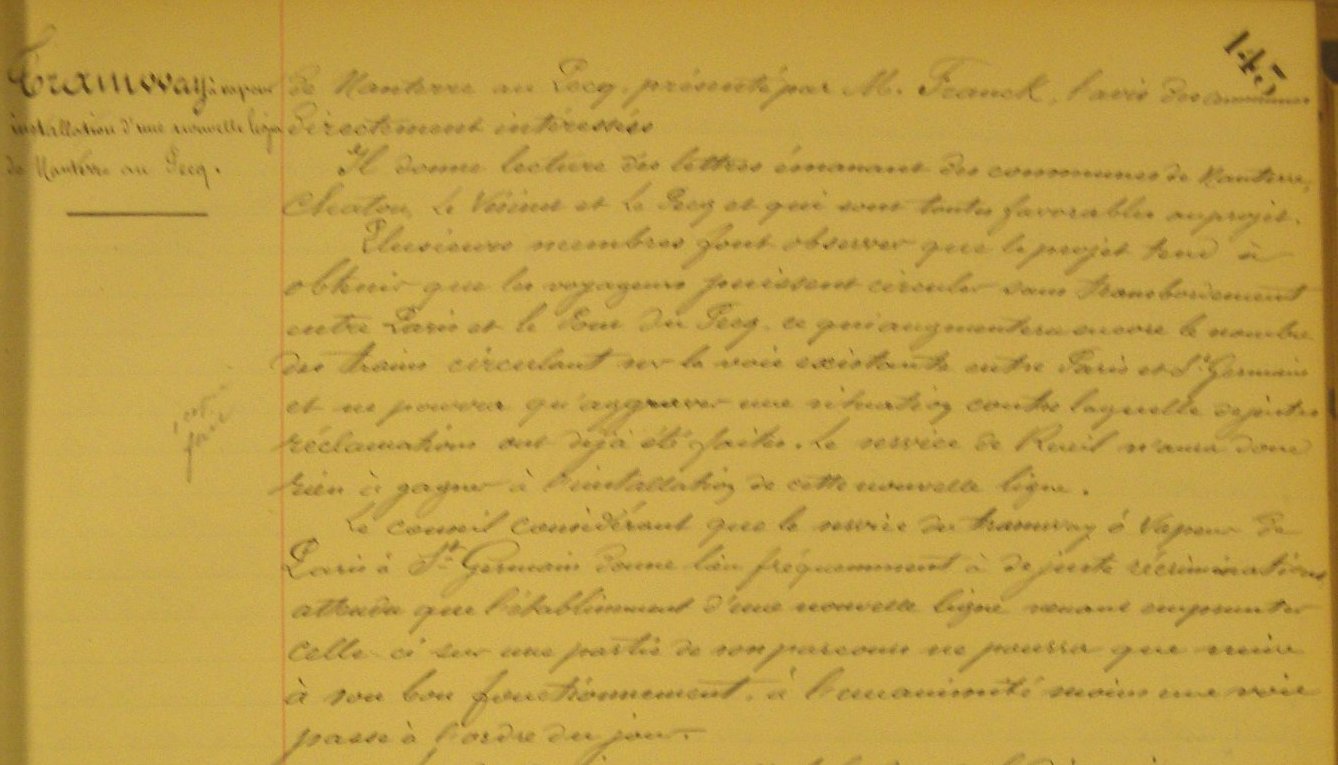 145
Tramway à vapeur
installation d'une nouvelle ligne
de Nanterre au Pecq.
de Nanterre au Pecq, présenté par M. Franck, l'avis des communes
directement intéressées
Il donne lecture des lettres émanant des communes de Nanterre,
Chatou, Le Vésinet et Le Pecq et qui sont toutes favorables au projet.
Plusieurs membres font observer que le projet tend à
obtenir que les voyageurs puissent circuler sans transbordement
entre Paris et le Pont du Pecq, ce qui augmentera encore le nombre
des trains circulant sur la voie existante entre Paris et St Germain
et ne pourra qu'aggraver une situation contre laquelle de justes
réclamations ont déjà été faites. Le service de Rueil n'aura donc
rien à gagner à l'installation de cette nouvelle ligne.
Le conseil considérant que le service du tramway à vapeur de
Paris à St Germain donne lieu fréquemment à de juste récriminations
attendu que l'établissement d'une nouvelle ligne venant emprunter
celle-ci sur une partie de son parcours ne pourra que nuire
à son bon fonctionnement, à l'unanimité moins une voix
passe à l'ordre du jour.